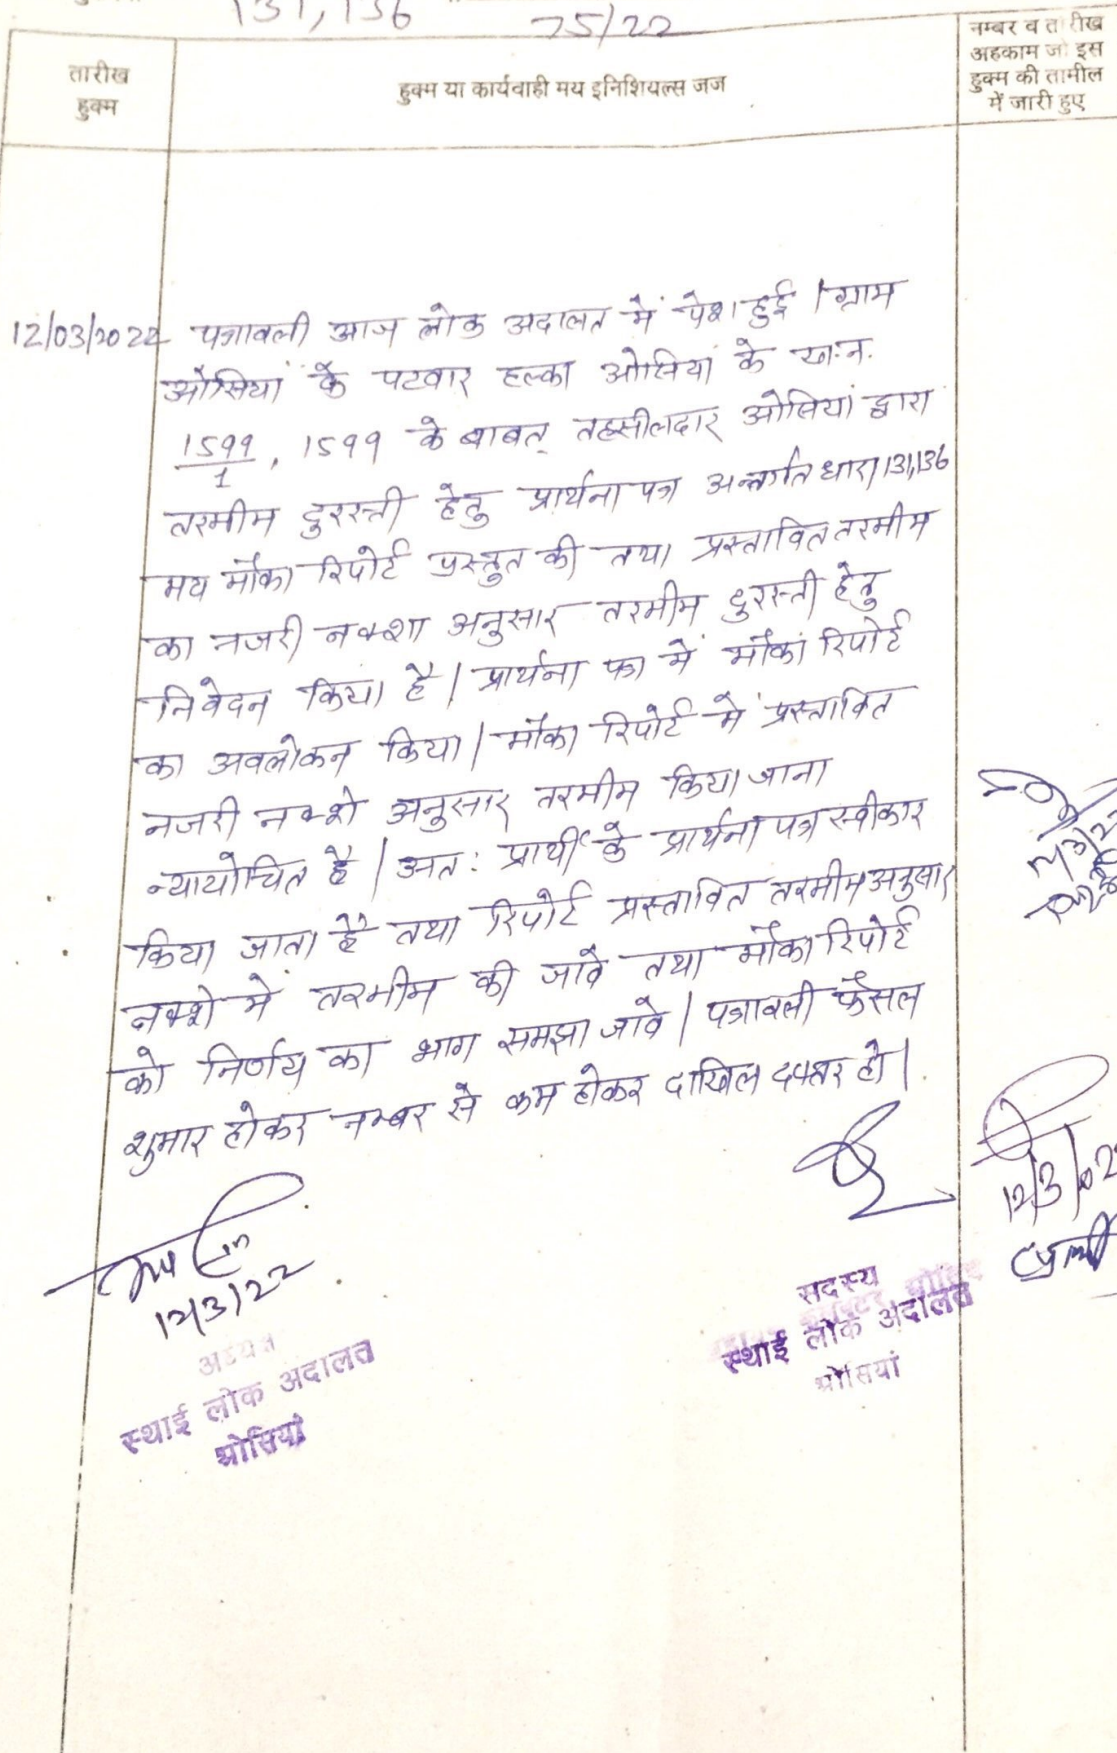 131,136 75/22
तारीख
हुक्म
हुक्म या कार्यवाही मय इनिशियल्स जज
नम्बर व तारीख
अहकाम जो इस
हुक्म की तामील
में जारी हुए
12/03/2022 पत्रावली आज लोक अदालत में पेश हुई । ग्राम
ओसियां के पटवार हल्का ओसियां के ख.न.
1599/1, 1599 के बाबत् तहसीलदार ओसियां द्वारा
तरमीम दुरस्ती हेतु प्रार्थना पत्र अन्तर्गत धारा 131,136
मय मौका रिपोर्ट प्रस्तुत की तथा प्रस्तावित तरमीम
का नजरी नक्शा अनुसार तरमीम दुरस्ती हेतु
निवेदन किया है । प्रार्थना पत्र में मौका रिपोर्ट
का अवलोकन किया । मौका रिपोर्ट में प्रस्तावित
नजरी नक्शे अनुसार तरमीम किया जाना
न्यायोचित है । अत: प्रार्थी के प्रार्थना पत्र स्वीकार
किया जाता है तथा रिपोर्ट प्रस्तावित तरमीम अनुसार
नक्शे में तरमीम की जावे तथा मौका रिपोर्ट
को निर्णय का भाग समझा जावे । पत्रावली फैसल
शुमार होकर नम्बर से कम होकर दाखिल दफ्तर हो ।
12/3/22
अध्यक्ष
स्थाई लोक अदालत
ओसियां
सदस्य
स्थाई लोक अदालत
ओसियां
12/3/22